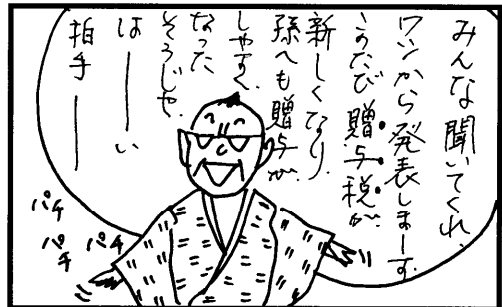 みんな聞いてくれ、
ワシから発表しまーす。
こうたび贈与税が、
新しくなり、
孫へも贈与が、
しやすく、
なった
そうじゃ、
はーーい
拍手ーー
パチ
パチ
パチ